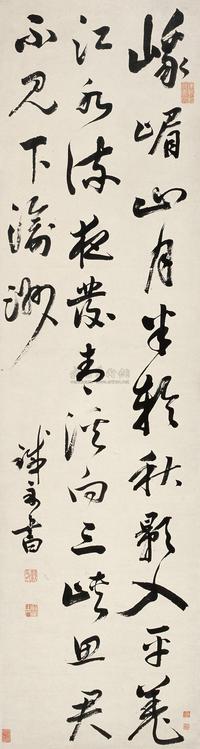 峨嵋山月半輪秋影入平羌
江水流夜發清溪向三峽思君
不見下渝州
書